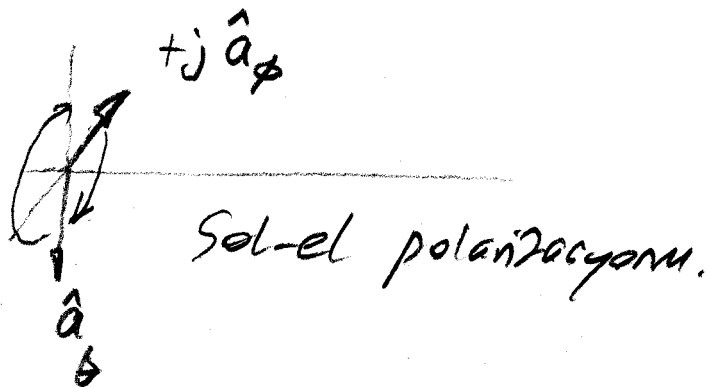 +j â_φ
Sol-el polarizasyonu.
â_θ